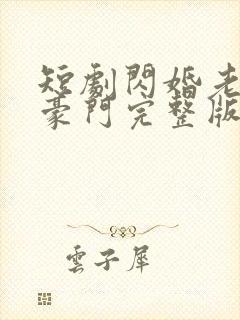 短劇閃婚老
豪門完整版
雲子犀